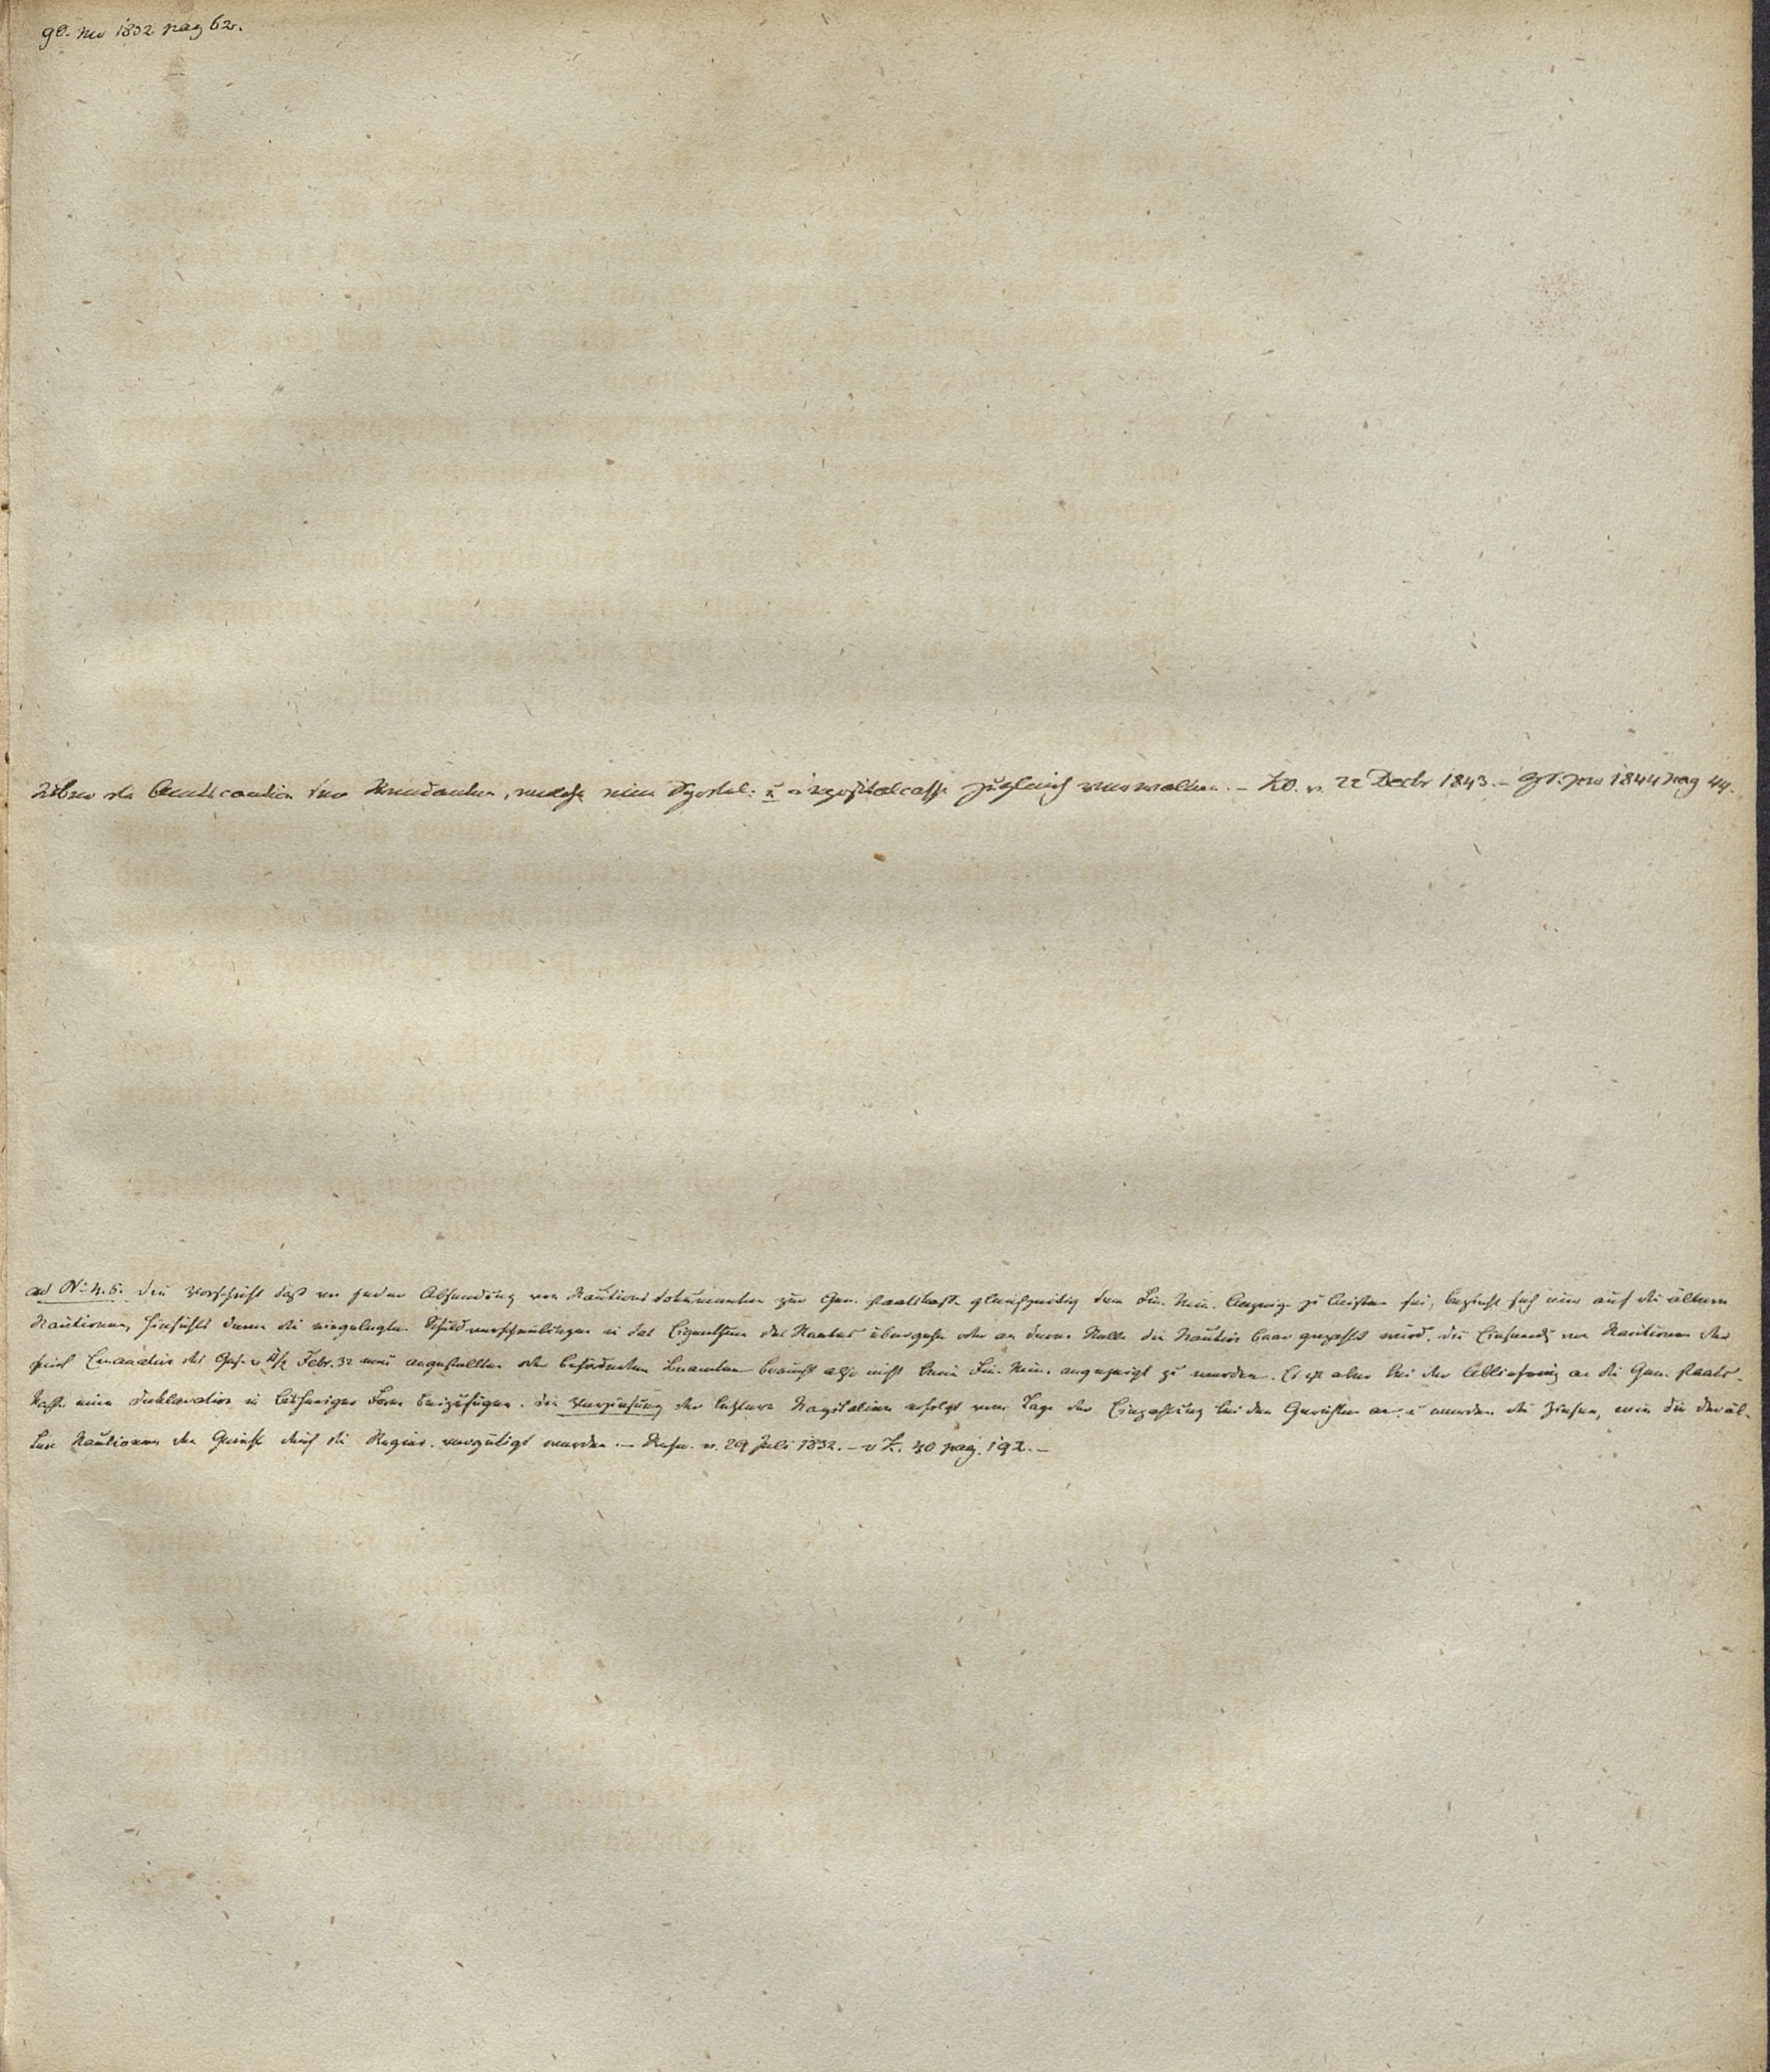 GS. pro 1832 pag 62.
Ueber die Amtscaution der Rendanten, welche eine Sportel- u Depositalcasse zugleich verwalten. – KO. v. 22 Decbr 1843. – GS. pro 1844 pag 44.
ad No 4. 5. Die Vorschrift daß von jeder Absendung von Kautionsdokumenten zur Gen. Staatskasse gleichzeitig dem Fin. Min. Anzeige zu leisten sei, bezieht sich nur auf die ältern
Kautionen, hinsichts deren die eingelegten Schuldverschreibungen in das Eigenthum des Staates übergehn oder an deren Stelle die Kaution baar gezahlt wird. Die Einsendg von Kautionen der
seit Emanation des Ges. v. Febr. 32 neu angestellten oder beförderten Beamten braucht also nicht beim Fin. Min. angezeigt zu werden. Es ist aber bei der Ablieferung an die Gen. Staats-
Kasse eine Deklaration in bisheriger Form beizufügen. Die Verzinsung der letztern Kapitalien erfolgt vom Tage der Einzahlung bei den Gerichten an, u werden die Zinsen, wie die der äl-
tern Kautionen der Gerichte durch die Regier. vergütigt werden. – Rescr. v. 29 Juli 1832. – v K. 40 pag. 192. –